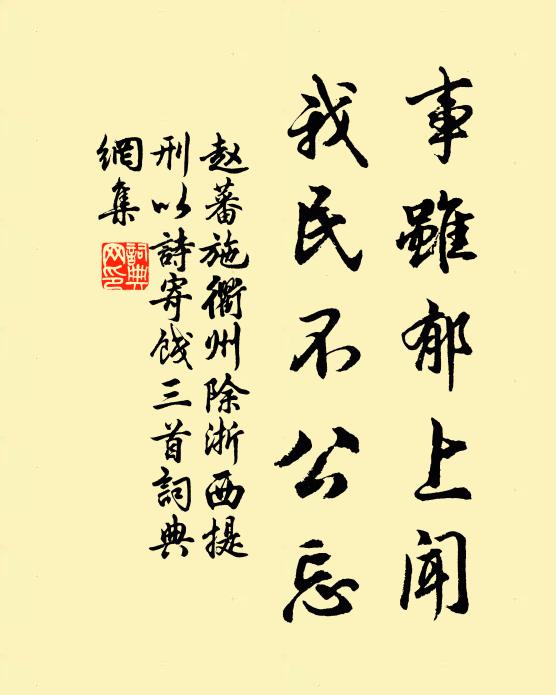 事雖郁上闻
我民不公忘
赵蕃施衢州除浙西提
刑以詩寄饯三首詞典
網集
詞典網印